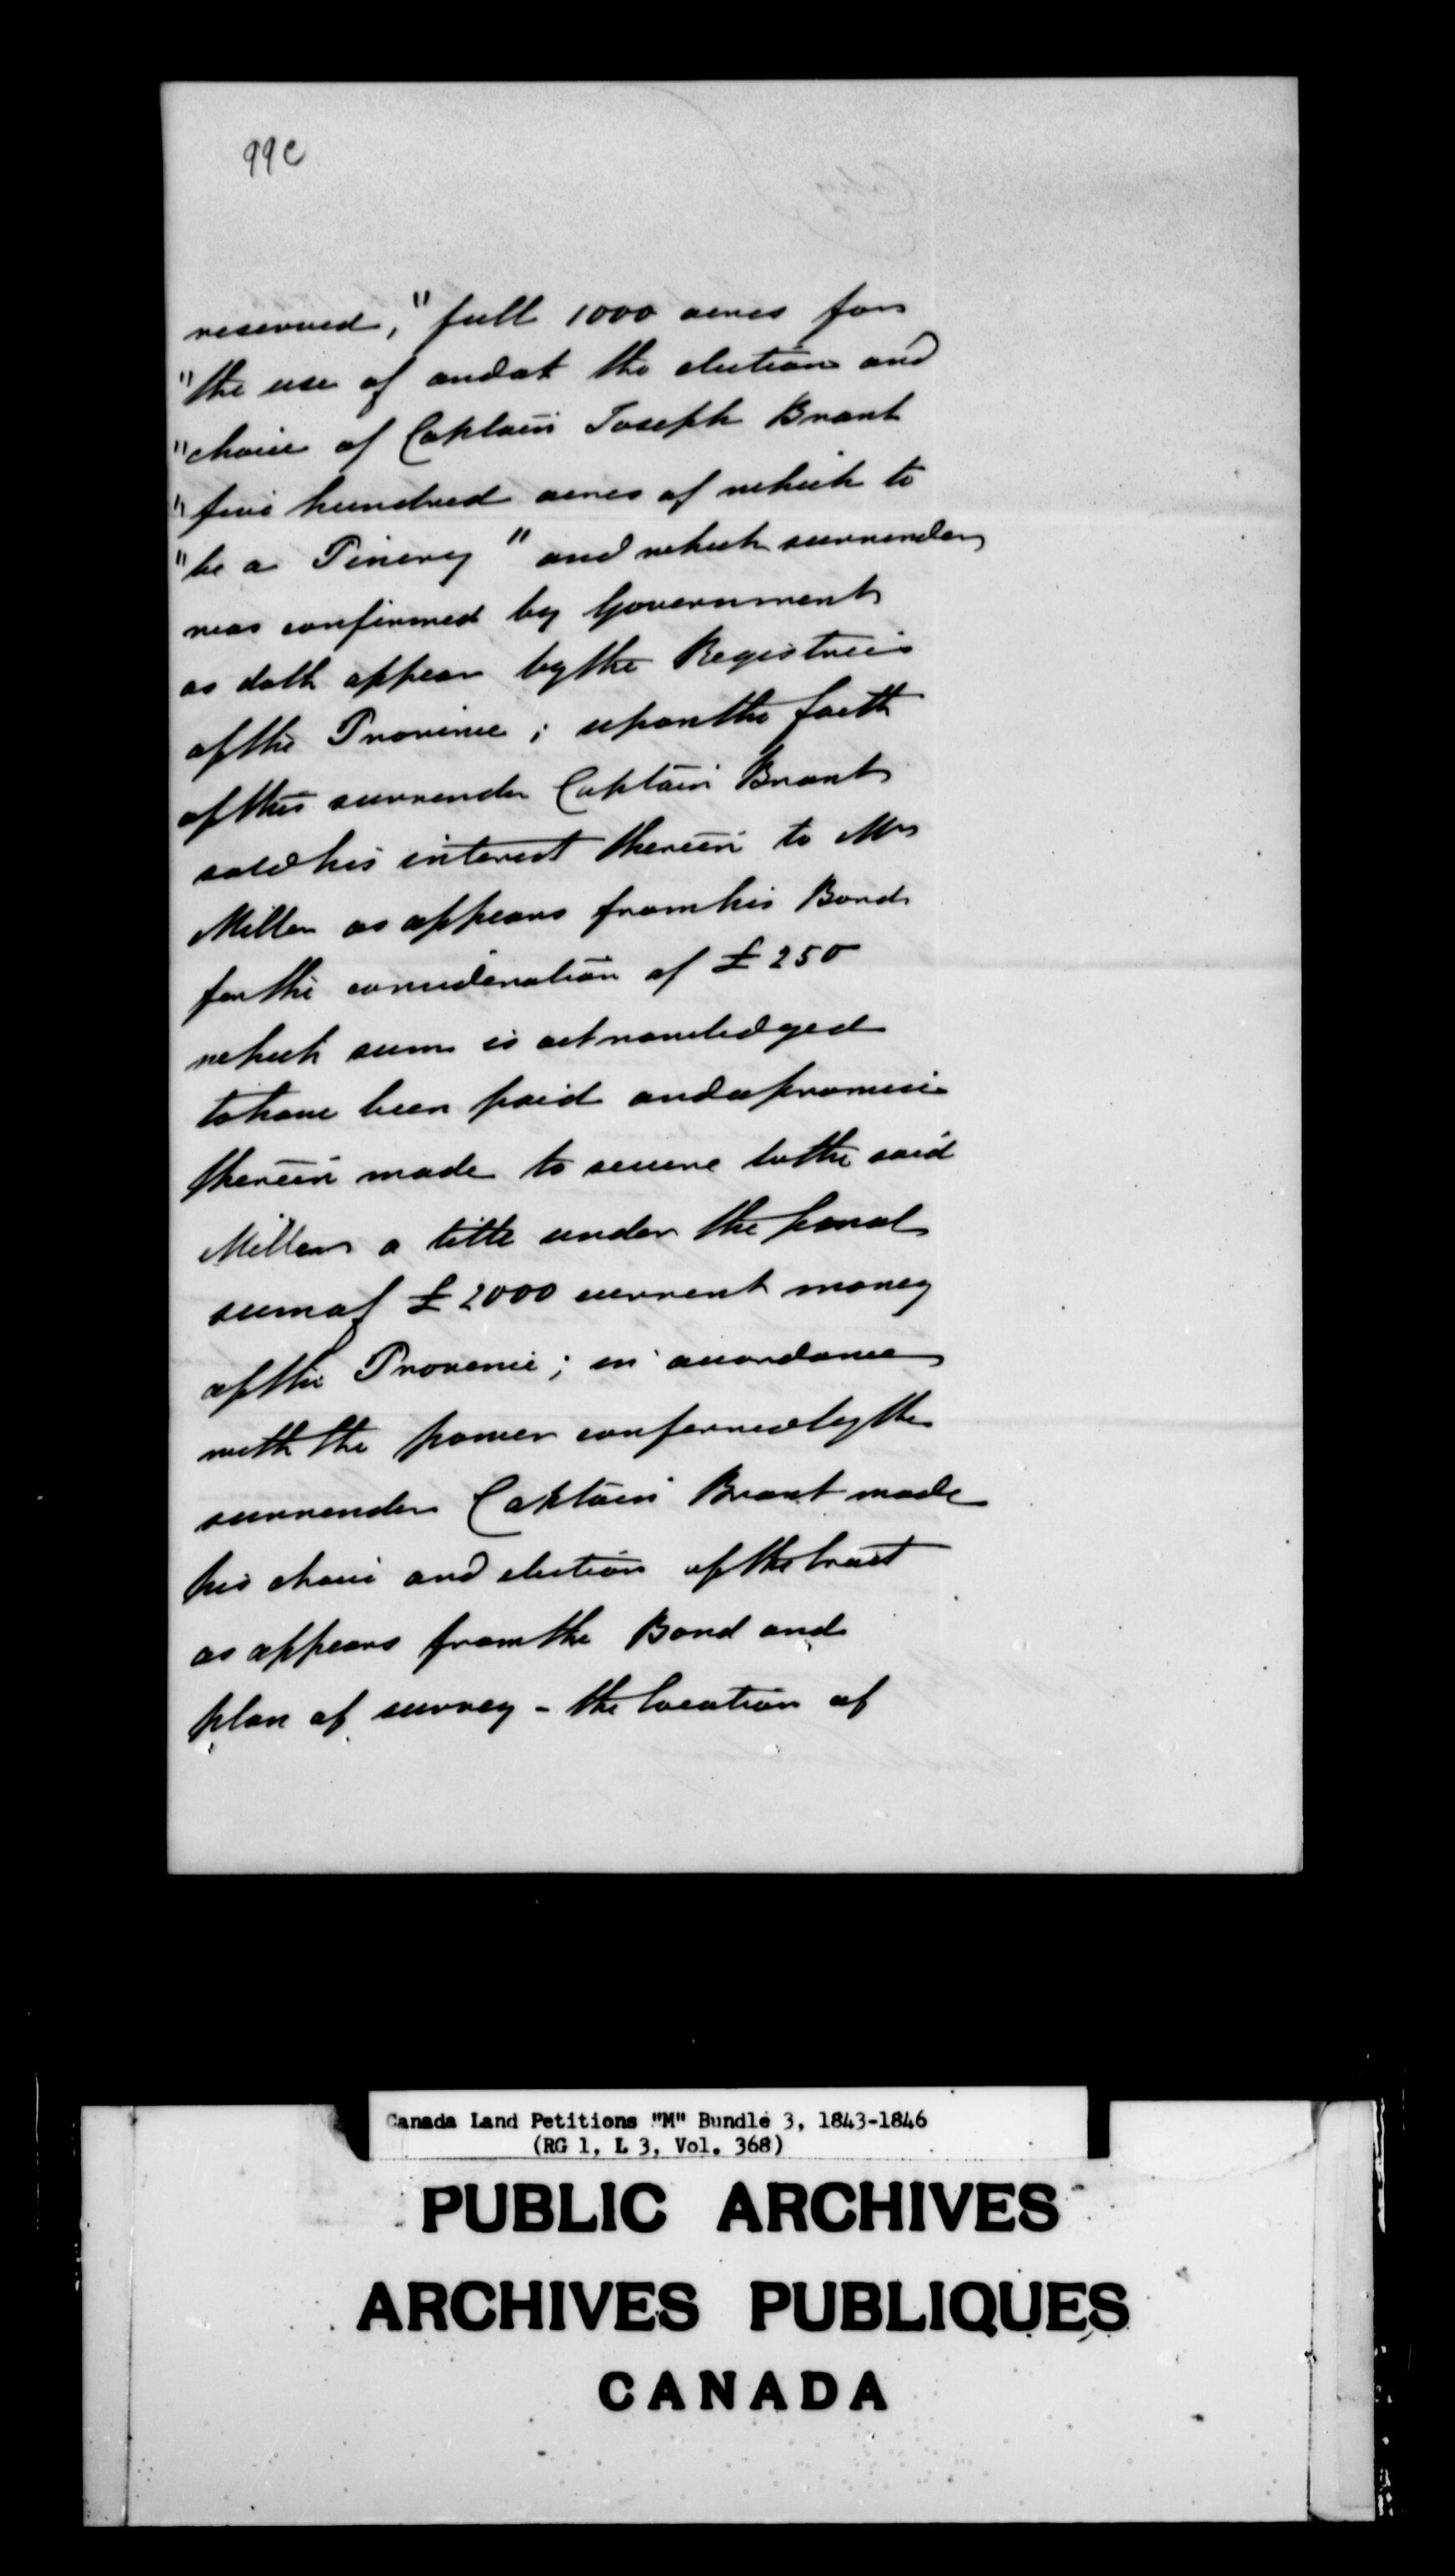 99c
reserved, "full 1000 acres for
"the use of and at the election and
"choice of Captain Joseph Brant
"five hundred acres of which to
"be a Pinery" and which surrender
was confirmed by Government
as doth appear by the Registries
of the Province; upon the faith
of this surrender Captain Brant
sold his interest therein to Mr
Miller as appears from his Bond
for the consideration of £250
which sum is acknowledged
to have been paid and a promise
therein made to secure to the said
Miller a title under the penal
sum of £2000 current money
of the Province; in accordance
with the power conferred by the
surrender Captain Brant made
his choice and election of the tract
as appears from the Bond and
plan of survey - the location of
Canada Land Petitions "M" Bundle 3, 1843-1846
(RG 1, L 3, Vol. 368)
PUBLIC ARCHIVES
ARCHIVES PUBLIQUES
CANADA